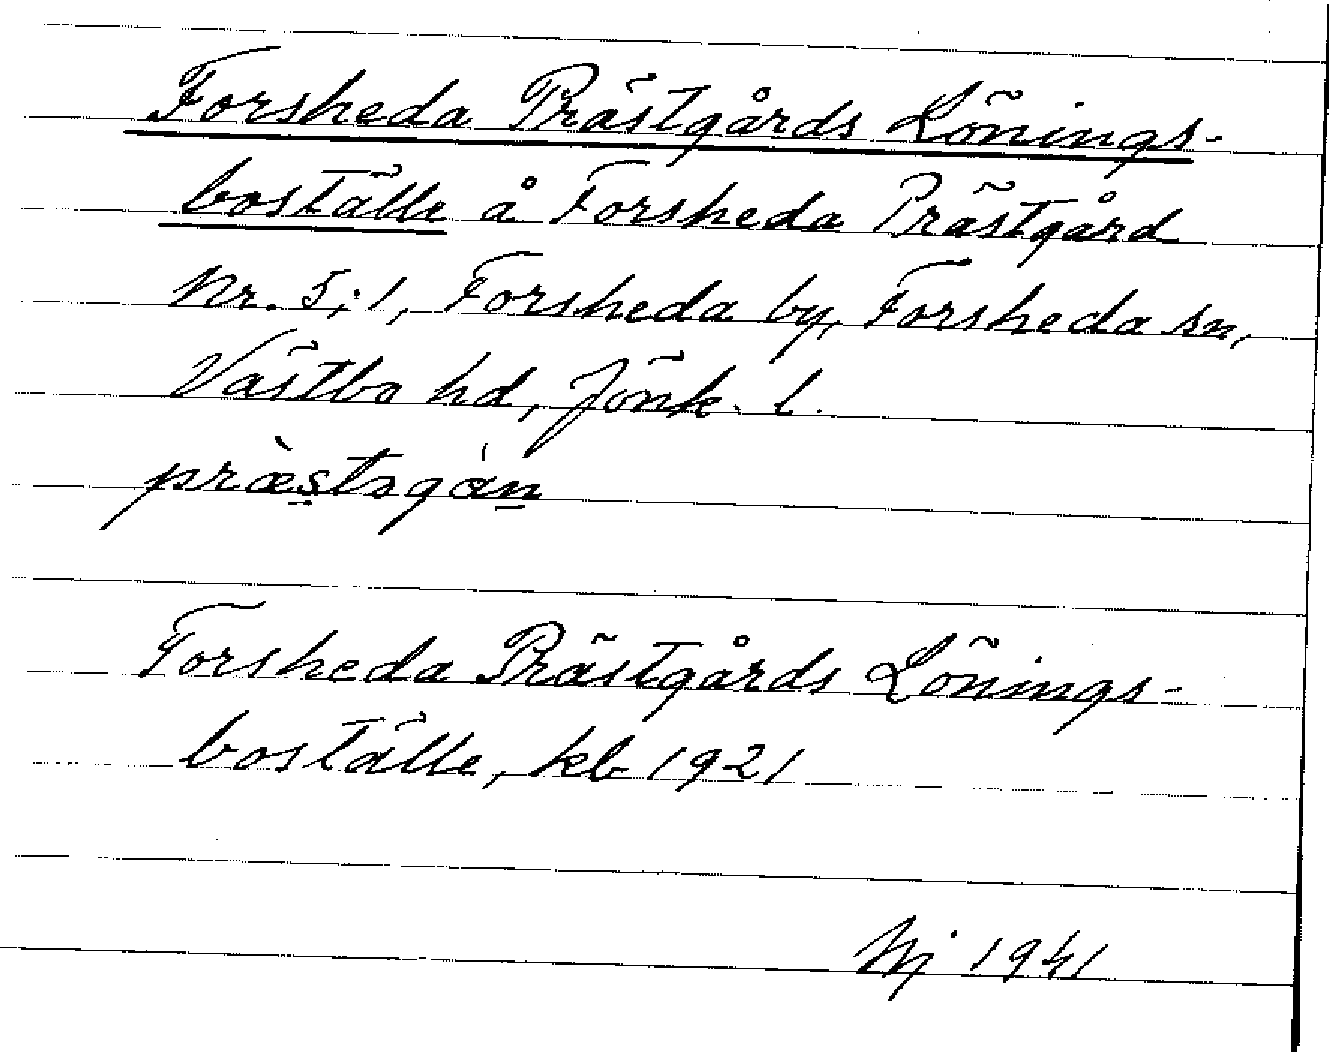 Forsheda Prästgårds Lönings-
boställe å Forsheda Prästgård
Nr. 5:1, Forsheda by, Forsheda sn,
Västbo hd, Jönk. l.
præ̀stsgán
Forsheda Prästgårds Lönings-
boställe, kb 1921
1941